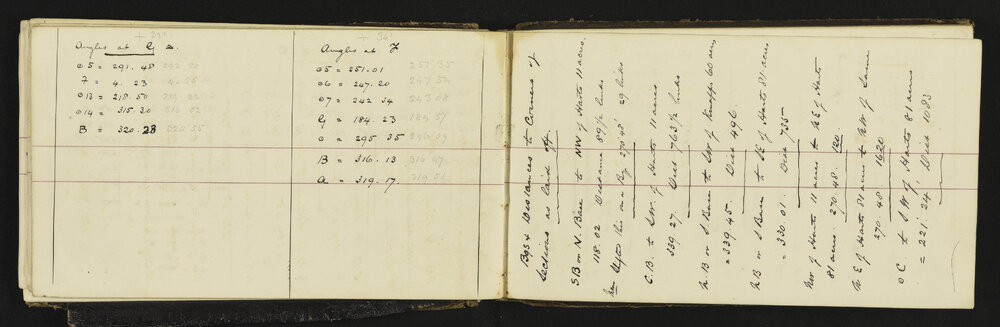 + 321
Angles at G
05 = 291.48
7 = 4.23
013 = 218.50
014 = 315.30
B = 320.28 320 55
+ 36
Angles at 7
05 = 251.01 251 35
06 = 247.20 247 54
07 = 242.34 243 08
G = 184.23 184 57
0 = 295 35 296 09
B = 316.13 316 47
A = 319.17. 319 51
Bgs & Distances to Corners of
Sections as laid off
SB or N. Base to NW of Harts 11 acres.
118.02 Distance 89 1/2 links
270 48 29 links
C.B. to S.W. of Harts 11 acres
339.27. Dist 763 1/2 links
N.B or S Base to SW of Knapps 60 acres
= 339.45. Dist 496.
N.B or S Base to SE of Harts 81 acres
= 330.01. Dist 735
NW of Harts 11 acres to NE of Harts
81 acres. 270.48. 120.
N E of Harts 81 acres to N.W of Same
270.48 1620
0 C. to S W of Harts 81 acres
= 221.24, Dist 1083